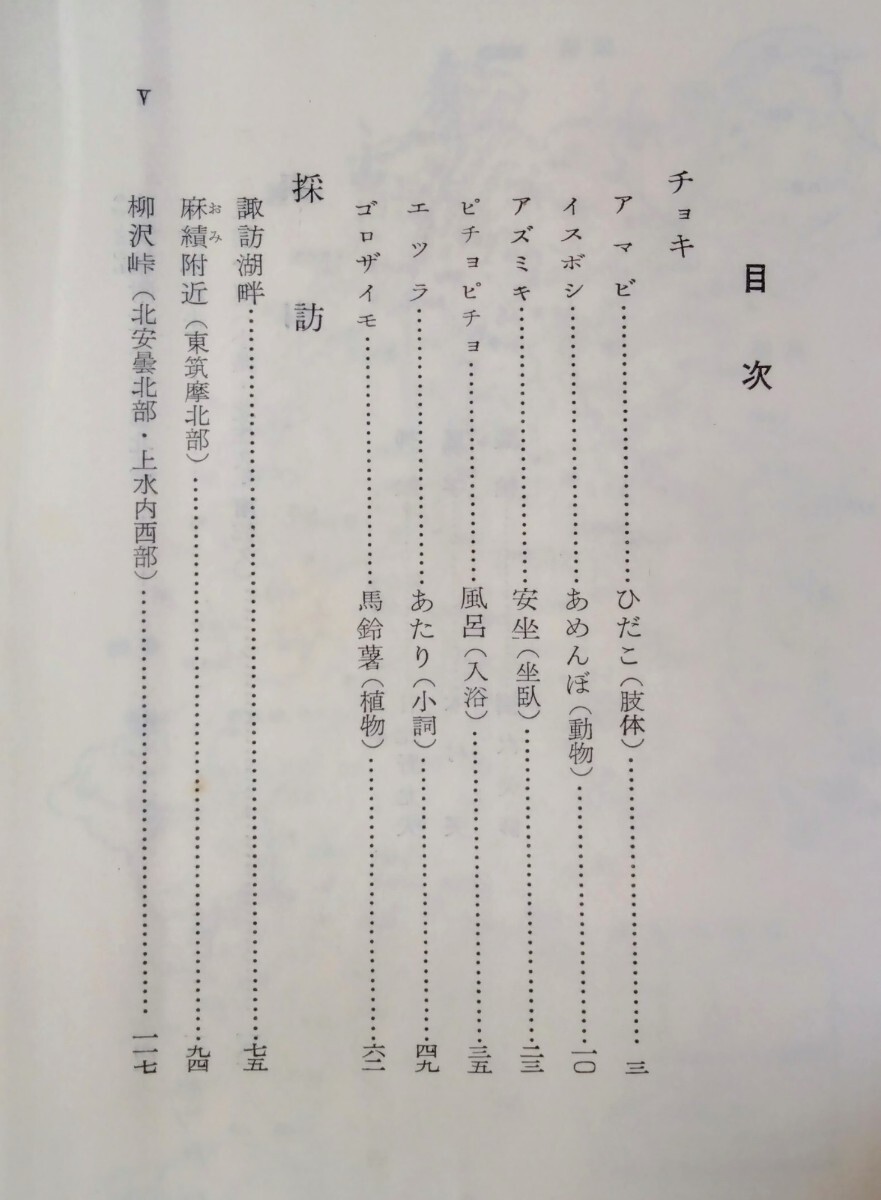 目次
チョキ
アマビ……………………ひだこ（肢体）……………………三
イスボシ……………………あめんぼ（動物）……………………一〇
アズミキ……………………安坐（坐臥）……………………二三
ピチョピチョ……………………風呂（入浴）……………………三五
エツラ……………………あたり（小詞）……………………四九
ゴロザイモ……………………馬鈴薯（植物）……………………六二
採訪
諏訪湖畔……………………七五
麻績おみ附近（東筑摩北部）……………………九四
柳沢峠（北安曇北部・上水内西部）……………………一一七
V